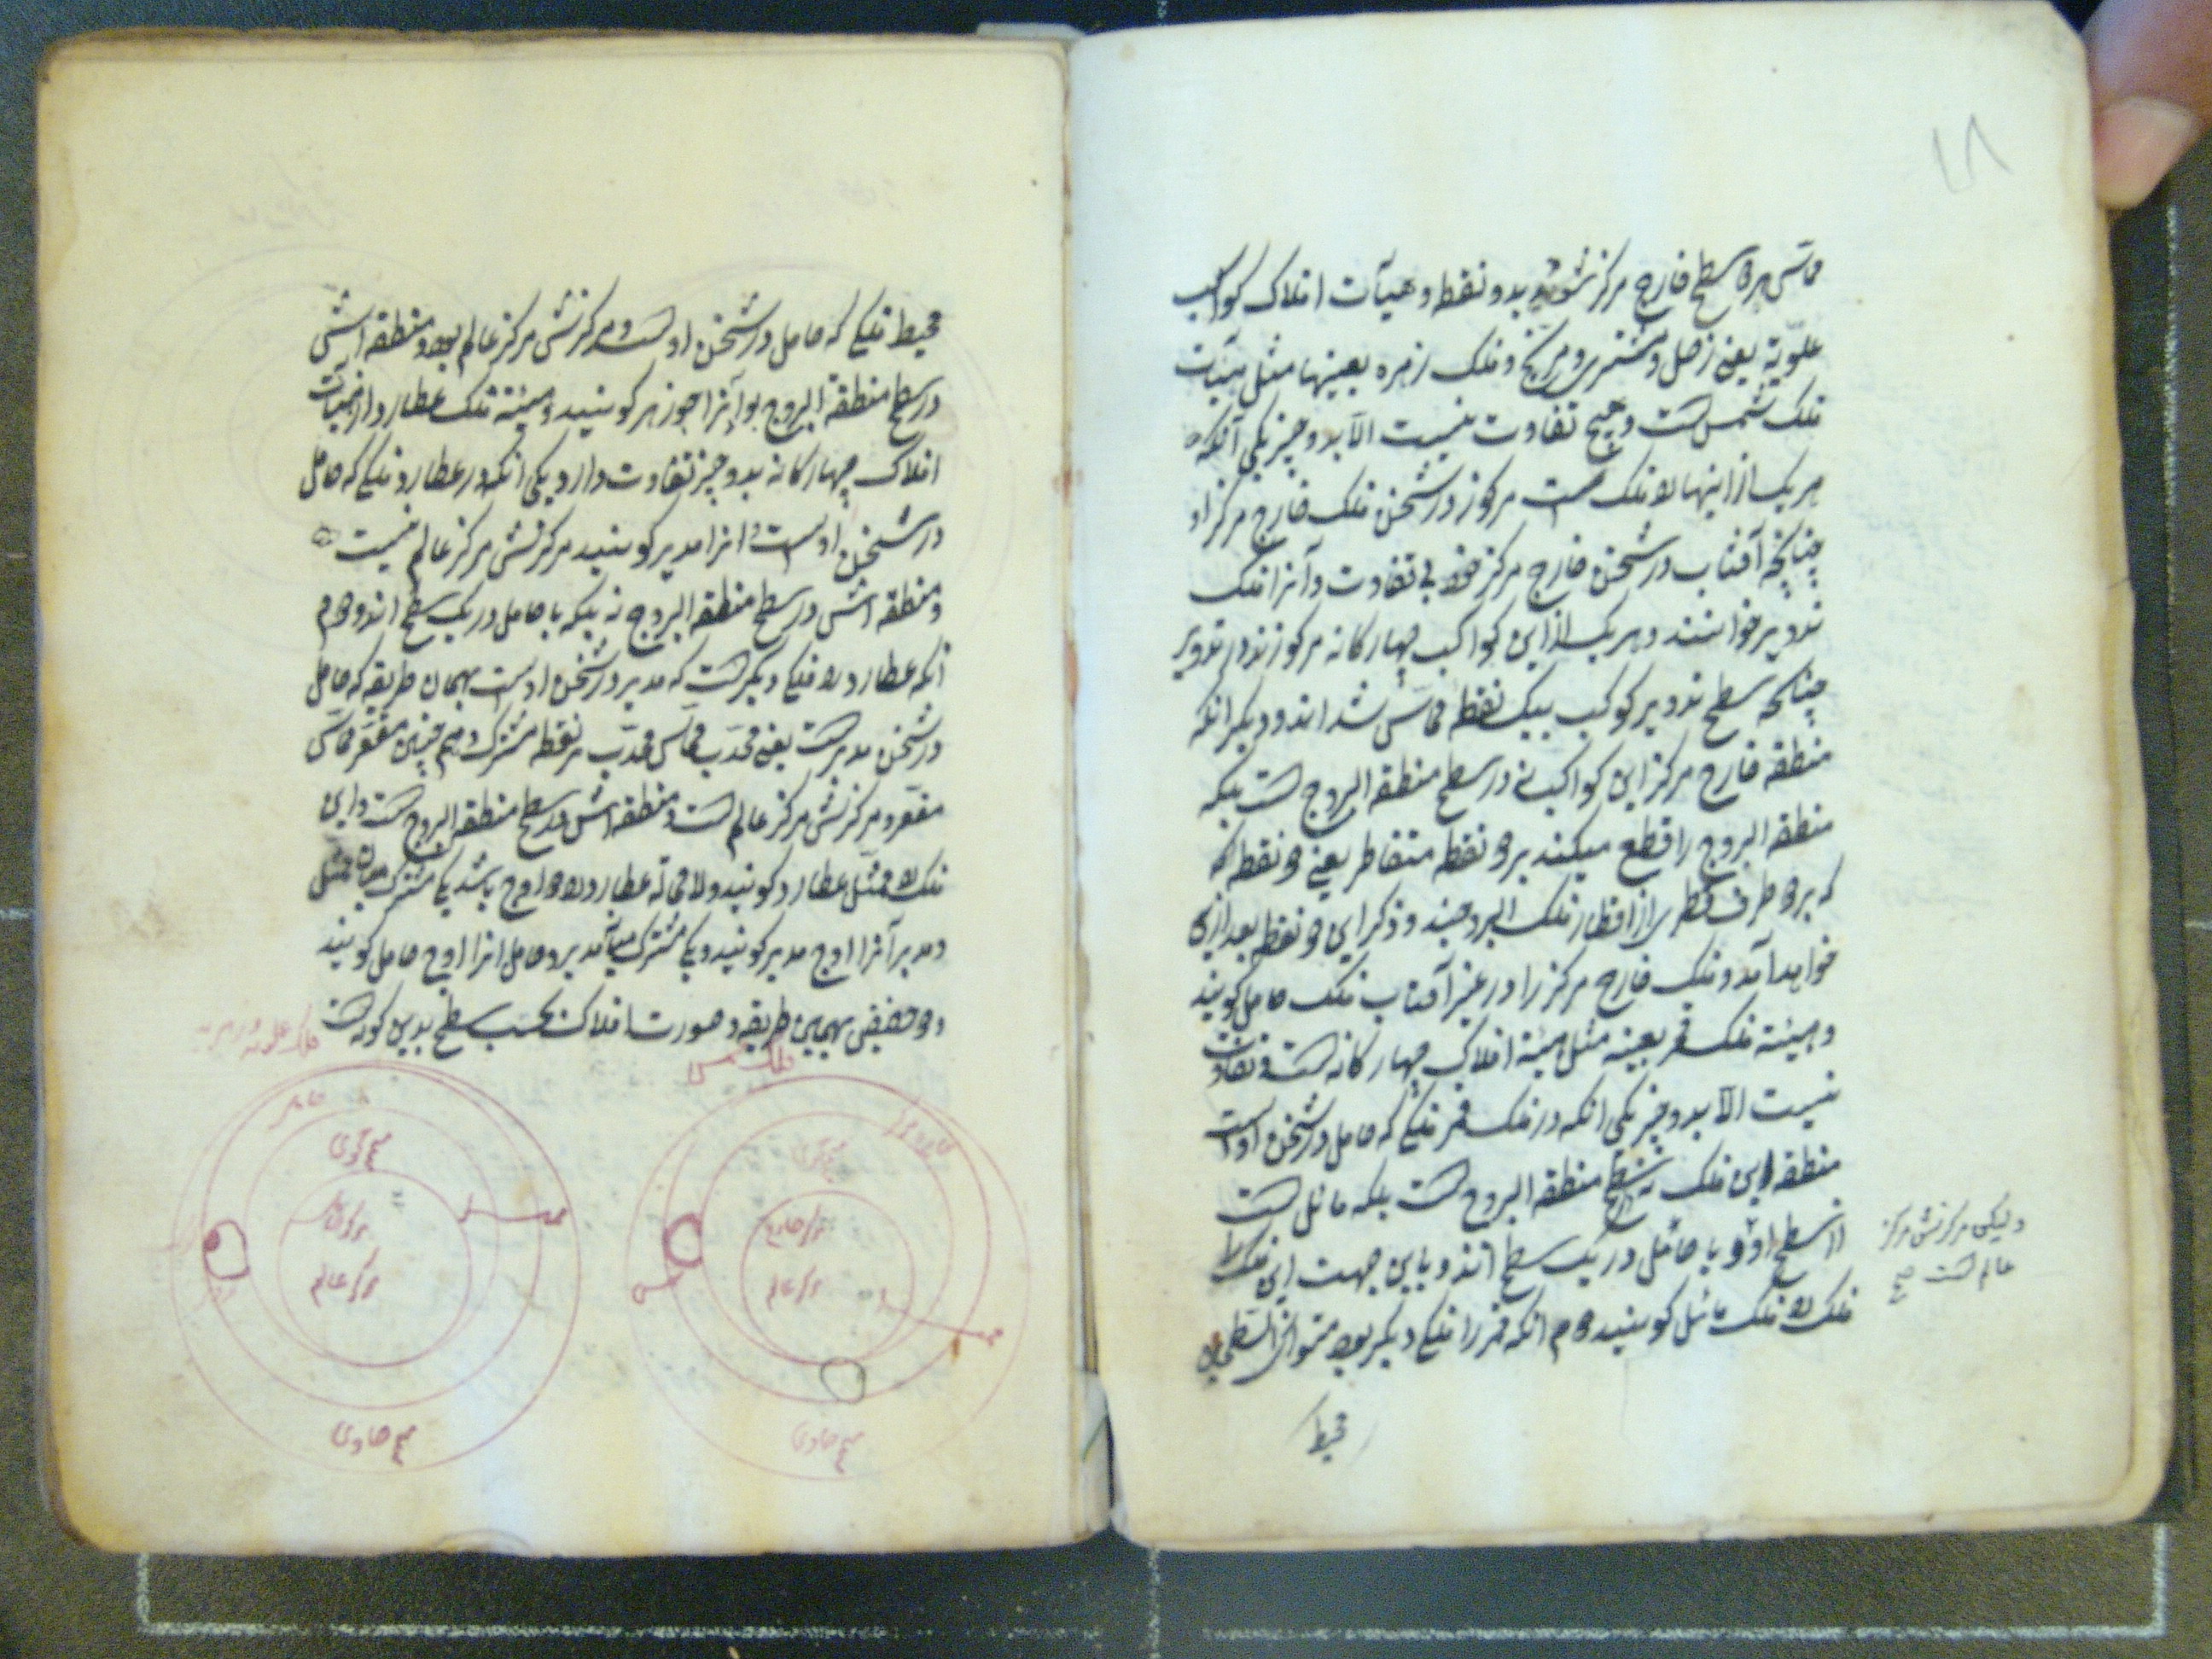 ۱۸
مماس هر دو سطح خارج مرکز شود بدو نقطه و هیآت افلاک کواکب
علویّة یعنی زحل و مشتری و مریخ و فلک زهره بعینها مثل هیئات
فلک شمس است و هیچ تفاوت نیست الّا بدو چیز یکی آنکه
هر یک از اینها را فلک است مرکوز در ثخن فلک خارج مرکز او
چنانچه آفتاب در ثخن خارج مرکز خود بی تفاوت و آنرا فلک
تدویر خوانند و هر یک از این کواکب چهارکانه مرکوزند در تدویر
چنانکه سطح تدویر کوکب بیک نقطه مماس شده اند و دیکر آنکه
منطقه خارج مرکز این کواکب نه در سطح منطقه البروج است بلکه
منطقه البروج را قطع میکنند بر دو نقطه متقاطر یعنی دو نقطه که
که بر دو طرف قطری از اقطار فلک البروجند و ذکر این دو نقطه بعد ازین
خواهد آمد و فلک خارج مرکز را در غیر آفتاب فلک حامل کویند
و هیئة فلک قمر بعینه مثل هیئة افلاک چهارکانه است و تفاوت
نیست الّا بدو چیز یکی انکه در فلک قمر فلکی که حامل در ثخن اوست
منطقه این فلک نه در سطح منطقه البروج است بلکه مائل است
از سطح او و با حامل در یک سطح اند و باین جهت این فلک را
فلک را فلک مائل کویند دوم انکه قمر را فلکی دیکر بود متوازی السطحین
ولیکن مرکزش مرکز
عالم است صح
محیط
محیط فلکی که حامل در ثخن اوست و مرکزش مرکز عالم بود و منطقه اش
در سطح منطقة البروج بود آنرا جوزهر کویند و هیئة فلک عطارد از هیآت
افلاک چهارکانه بدو چیز تفاوت دارد یکی انکه در عطارد فلکی که حامل
در ثخن اوست و انرا مدیر کویند مرکزش مرکز عالم نیست
و منطقه اش در سطح منطقه البروج نه بلکه با حامل در یک سطح اند و دوم
انکه عطارد را فلکی دیکر است که مدیر در ثخن اوست بهمان طریقه که حامل
در ثخن مدیر است یعنی محدّب مماس محدّب بر نقطه مشترک و هم چنین مقعّر مماسّ
مقعّر و مرکزش مرکز عالم است و منطقه اش در سطح منطقه البروج است و این
فلک را ممثّل عطارد کویند و لا محاله عطارد را دو اوج باشد یکی مشترک میان ممثّل
و مدیر آنرا اوج مدیر کویند و یکی مشترک میان مدیر و حامل انرا اوج حامل کویند
و دو حضیض بهمین طریقه و صورت افلاک بحسب سطح بدین کونه است
فلک شمس
فلک علویه و زهره
خارج مرکز
مرکز خارج
مرکز عالم
شمس
سطح حاوی
حامل
سطح محوی
مرکز حامل
مرکز عالم
سطح حاوی